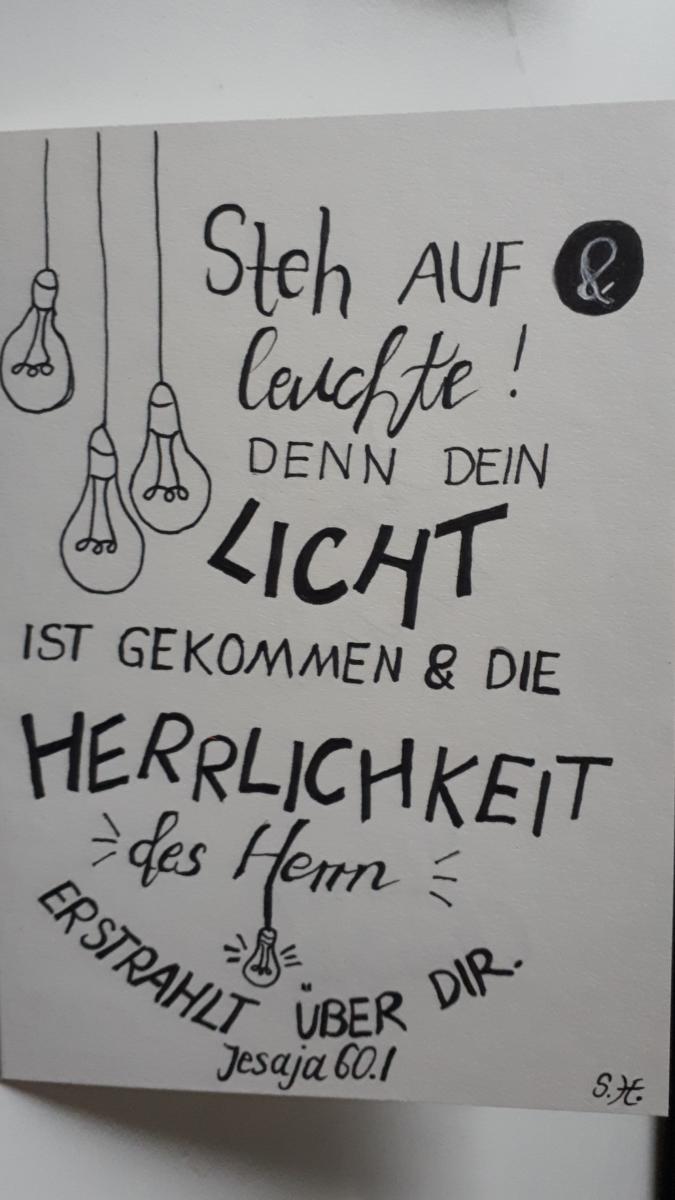 Steh AUF &
leuchte!
DENN DEIN
LICHT
IST GEKOMMEN & DIE
HERRLICHKEIT
des Herrn
ERSTRAHLT ÜBER DIR.
Jesaja 60.1
S.H.